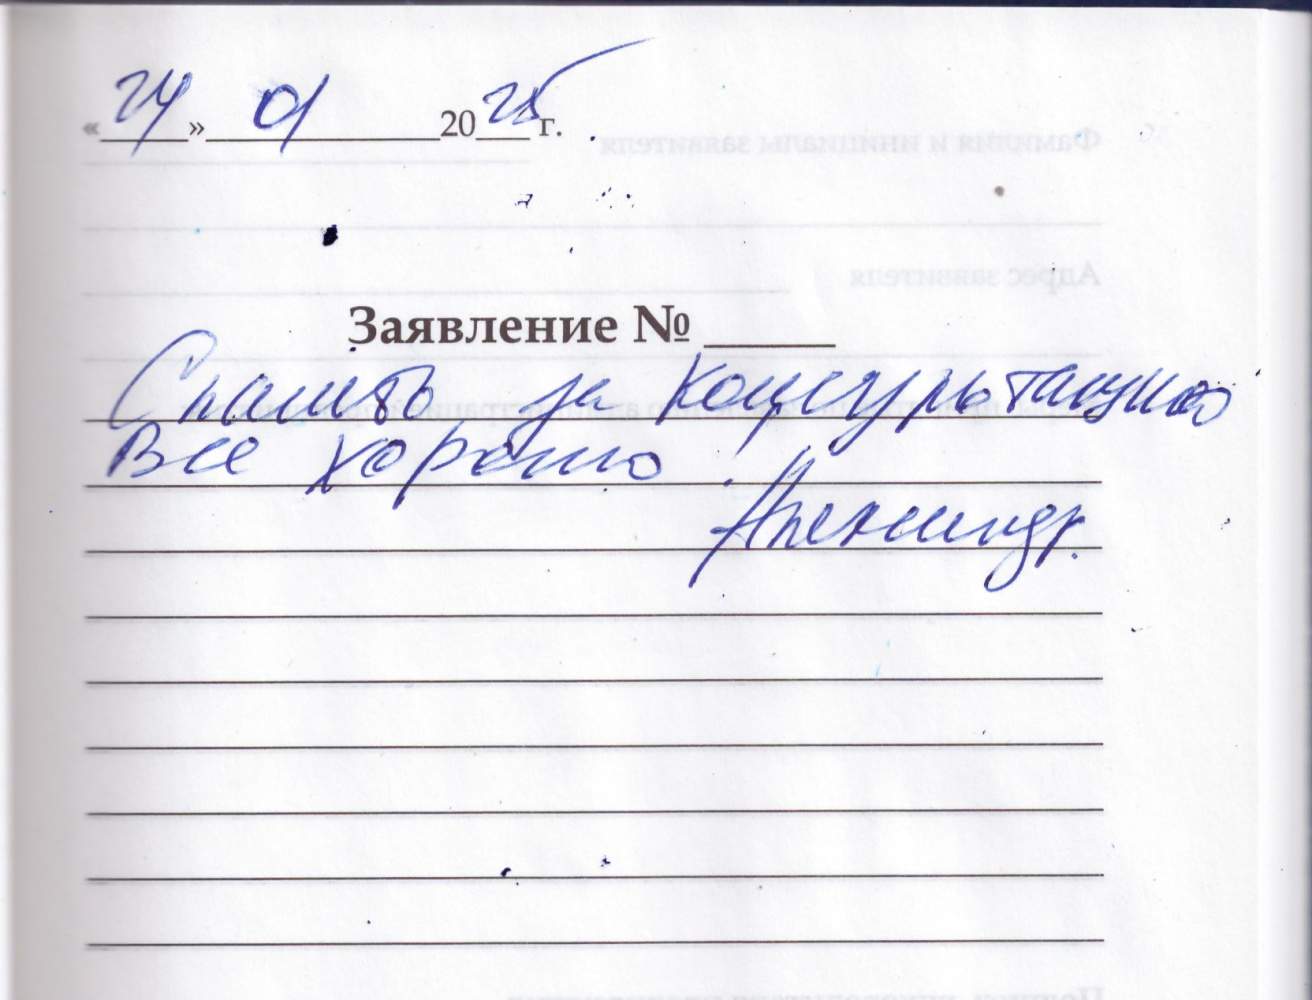 «24» 01 2025 г.
Заявление №
Спасибо за консультацию
Все хорошо.
Александр.